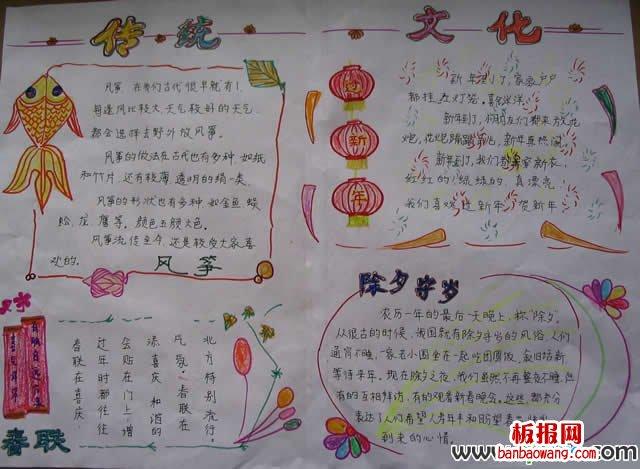 传统
文化
风筝,在我们古代很早就有了,
每逢风比较大,天气较好的天气,
都会选择去野外放风筝。
风筝的做法在古代也有多种,如纸
和竹片,还有较薄透明的绢一类。
风筝的形状也有多种,如金鱼、蜈
蚣、龙、鹰等。颜色五颜六色。
风筝流传至今,还是较受大家喜
欢的。
风筝
新年到了,家家户户
都挂在灯笼,喜气洋洋。
新年到了,
炮,新年真热闹。
新年到了,我们穿新衣,
红红的,绿绿的,真漂亮。
我们喜欢过新年,贺新年
新
年
除夕守岁
农历一年的最后一天晚上,称“除夕”。
从很古的时候,我国就有除夕守岁的风俗,人们
通宵不睡,一家老小围坐在一起吃团圆饭,叙旧话新,
等待来年。现在除夕之夜,我们虽然不再整夜不睡,但
有的互相拜访,有的观看新春晚会。这些,都充分
表达了人们希望人寿年丰和盼望春天
到来的心情。
北方特别流行。
风景。春联在
添喜庆和谐的
会贴在门上增
过年时都往往
春联在喜庆
春联
板报网
banbaowang.com